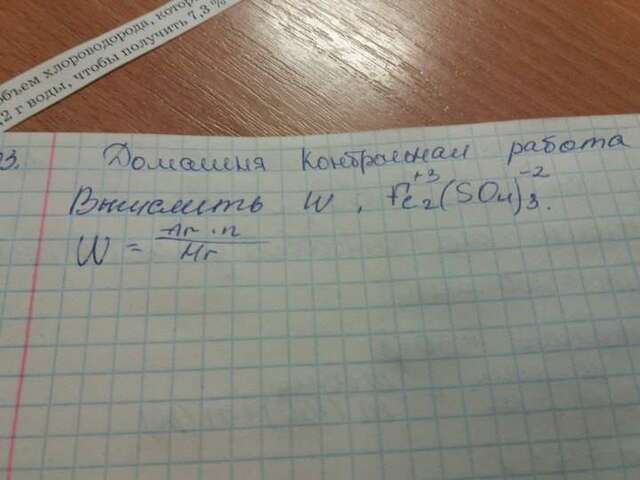 объем хлороводорода, кото
,2 г воды, чтобы получить 7,3 %
3. Домашняя контрольная работа
Вычислить W, Fe₂⁺³(SO₄)₃⁻².
W = Ar · n / Mr